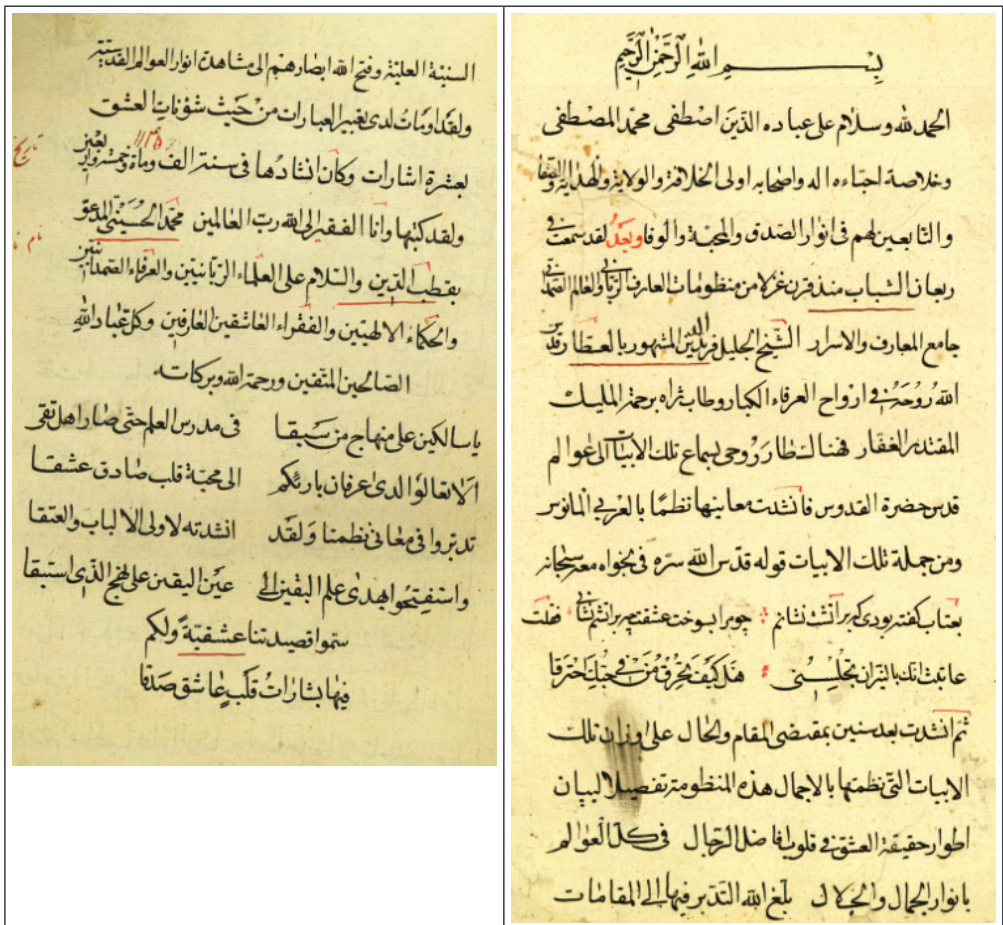 بِسْمِ اللهِ الرَّحْمٰنِ الرَّحِيمِ
الحمد لله وسلام على عباده الذين اصطفى محمد المصطفى
وخلاصة احبّاءه اله واصحابه اولى الخلافة والولاية والهداية والصفا
والتابعين لهم فى انوار الصدق والمحبة والوفا وبعد لقد سمعت فى
ريعان الشباب منذ قرن غزلا من منظومات العارف الربانى والعالم الصمدانى
جامع المعارف والاسرار الشيخ الجليل فريد الدين المشهور بالعطار قدس
الله رُوحَهُ فى ارواح العرفاء الكبار وطاب ثراه برحمة المليك
المقتدر الغفار فهنالك طار روحى بسماع تلك الابيات الى عوالم
قدس حضرة القدوس فانشدت معانيها نظمًا بالعربى المانوس
ومن جملة تلك الابيات قوله قدّس الله سره فى نجواه مع سبحانه
بعتاب كفته بودى كه بر آتشت نشانم چو مرا بسوخت عشقت چه بر آتشم نشانى فقلت
عاتبت انك بالنيران تجلسنى هل كيف تحرق من فى حبك احترقا
ثم انشدت بعد سنين بمقتضى المقام والحال على اوزان تلك
الابيات التى نظمتها بالاجمال هذه المنظومة تفصيلا لبيان
اطوار حقيقة العشق فى قلوب افاضل الرجال فى كل العوالم
بانوار الجمال والجلال بلّغ الله التدبر فيها الى المقامات
السنية العلية وفتح الله ابصارهم الى مشاهدة انوار العوالم القدسية
ولقد اومات لدى تغيير العبارات من حيث شؤنات العشق
بعشرة اشارات وكان انشادها فى سنة الف وماة وخمسة واربعين
تاريخ
ولقد كتبها وانا الفقير الى الله رب العالمين محمد الحُسَيْنى المدعو
نام
بقطب الدين والسلام على العلماء الربانيين والعرفاء الصمدانيين
والحكماء الالهيين والفقراء العاشقين العارفين وكل عباد الله
الصالحين المتقين ورحمة الله وبركاته
ياسالكين على منهاج من سبقا فى مدرس العلم حتى صار اهل تقى
الا تعالوا لدى عرفان بارئكم الى محبّة قلب صادق عشقا
تدبروا فى معانى نظمنا ولقد انشدته لاولى الالباب والعتقا
واستفتحوا بهدى علم اليقين الى عين اليقين على نهج الذى استبقا
سموا قصيدتنا عشقيّة ولكم
فيها بشارات قلب عاشق صدقا